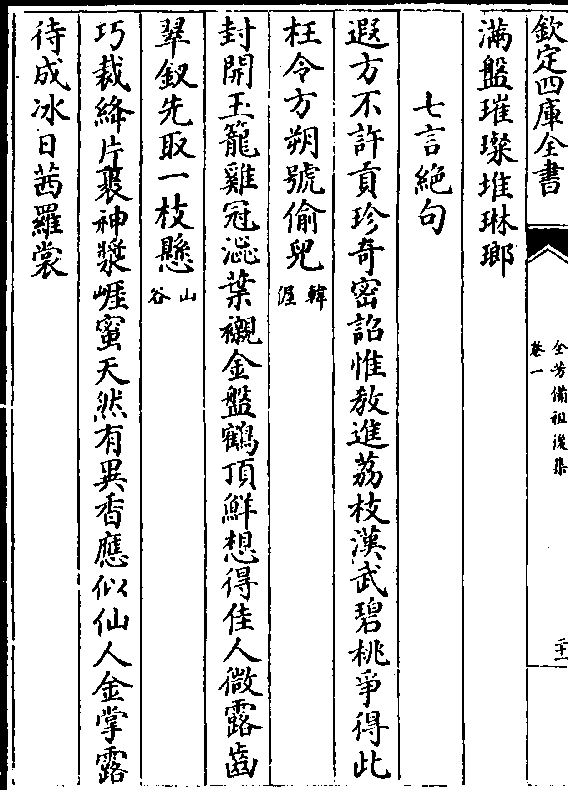 欽定四庫全書
全芳備祖後集
卷一
二十一
滿盤璀璨堆琳瑯
七言絶句
遐方不許貢珍奇宻詔惟教進荔枝漢武碧桃爭得此
枉令方朔號偷兒韓偓
封開玉籠雞冠澁葉襯金盤鶴頂鮮想得佳人微露齒
翠釵先取一枝懸山谷
巧裁絳片裹神漿崖蜜天然有異香應似仙人金掌露
待成冰日茜羅裳